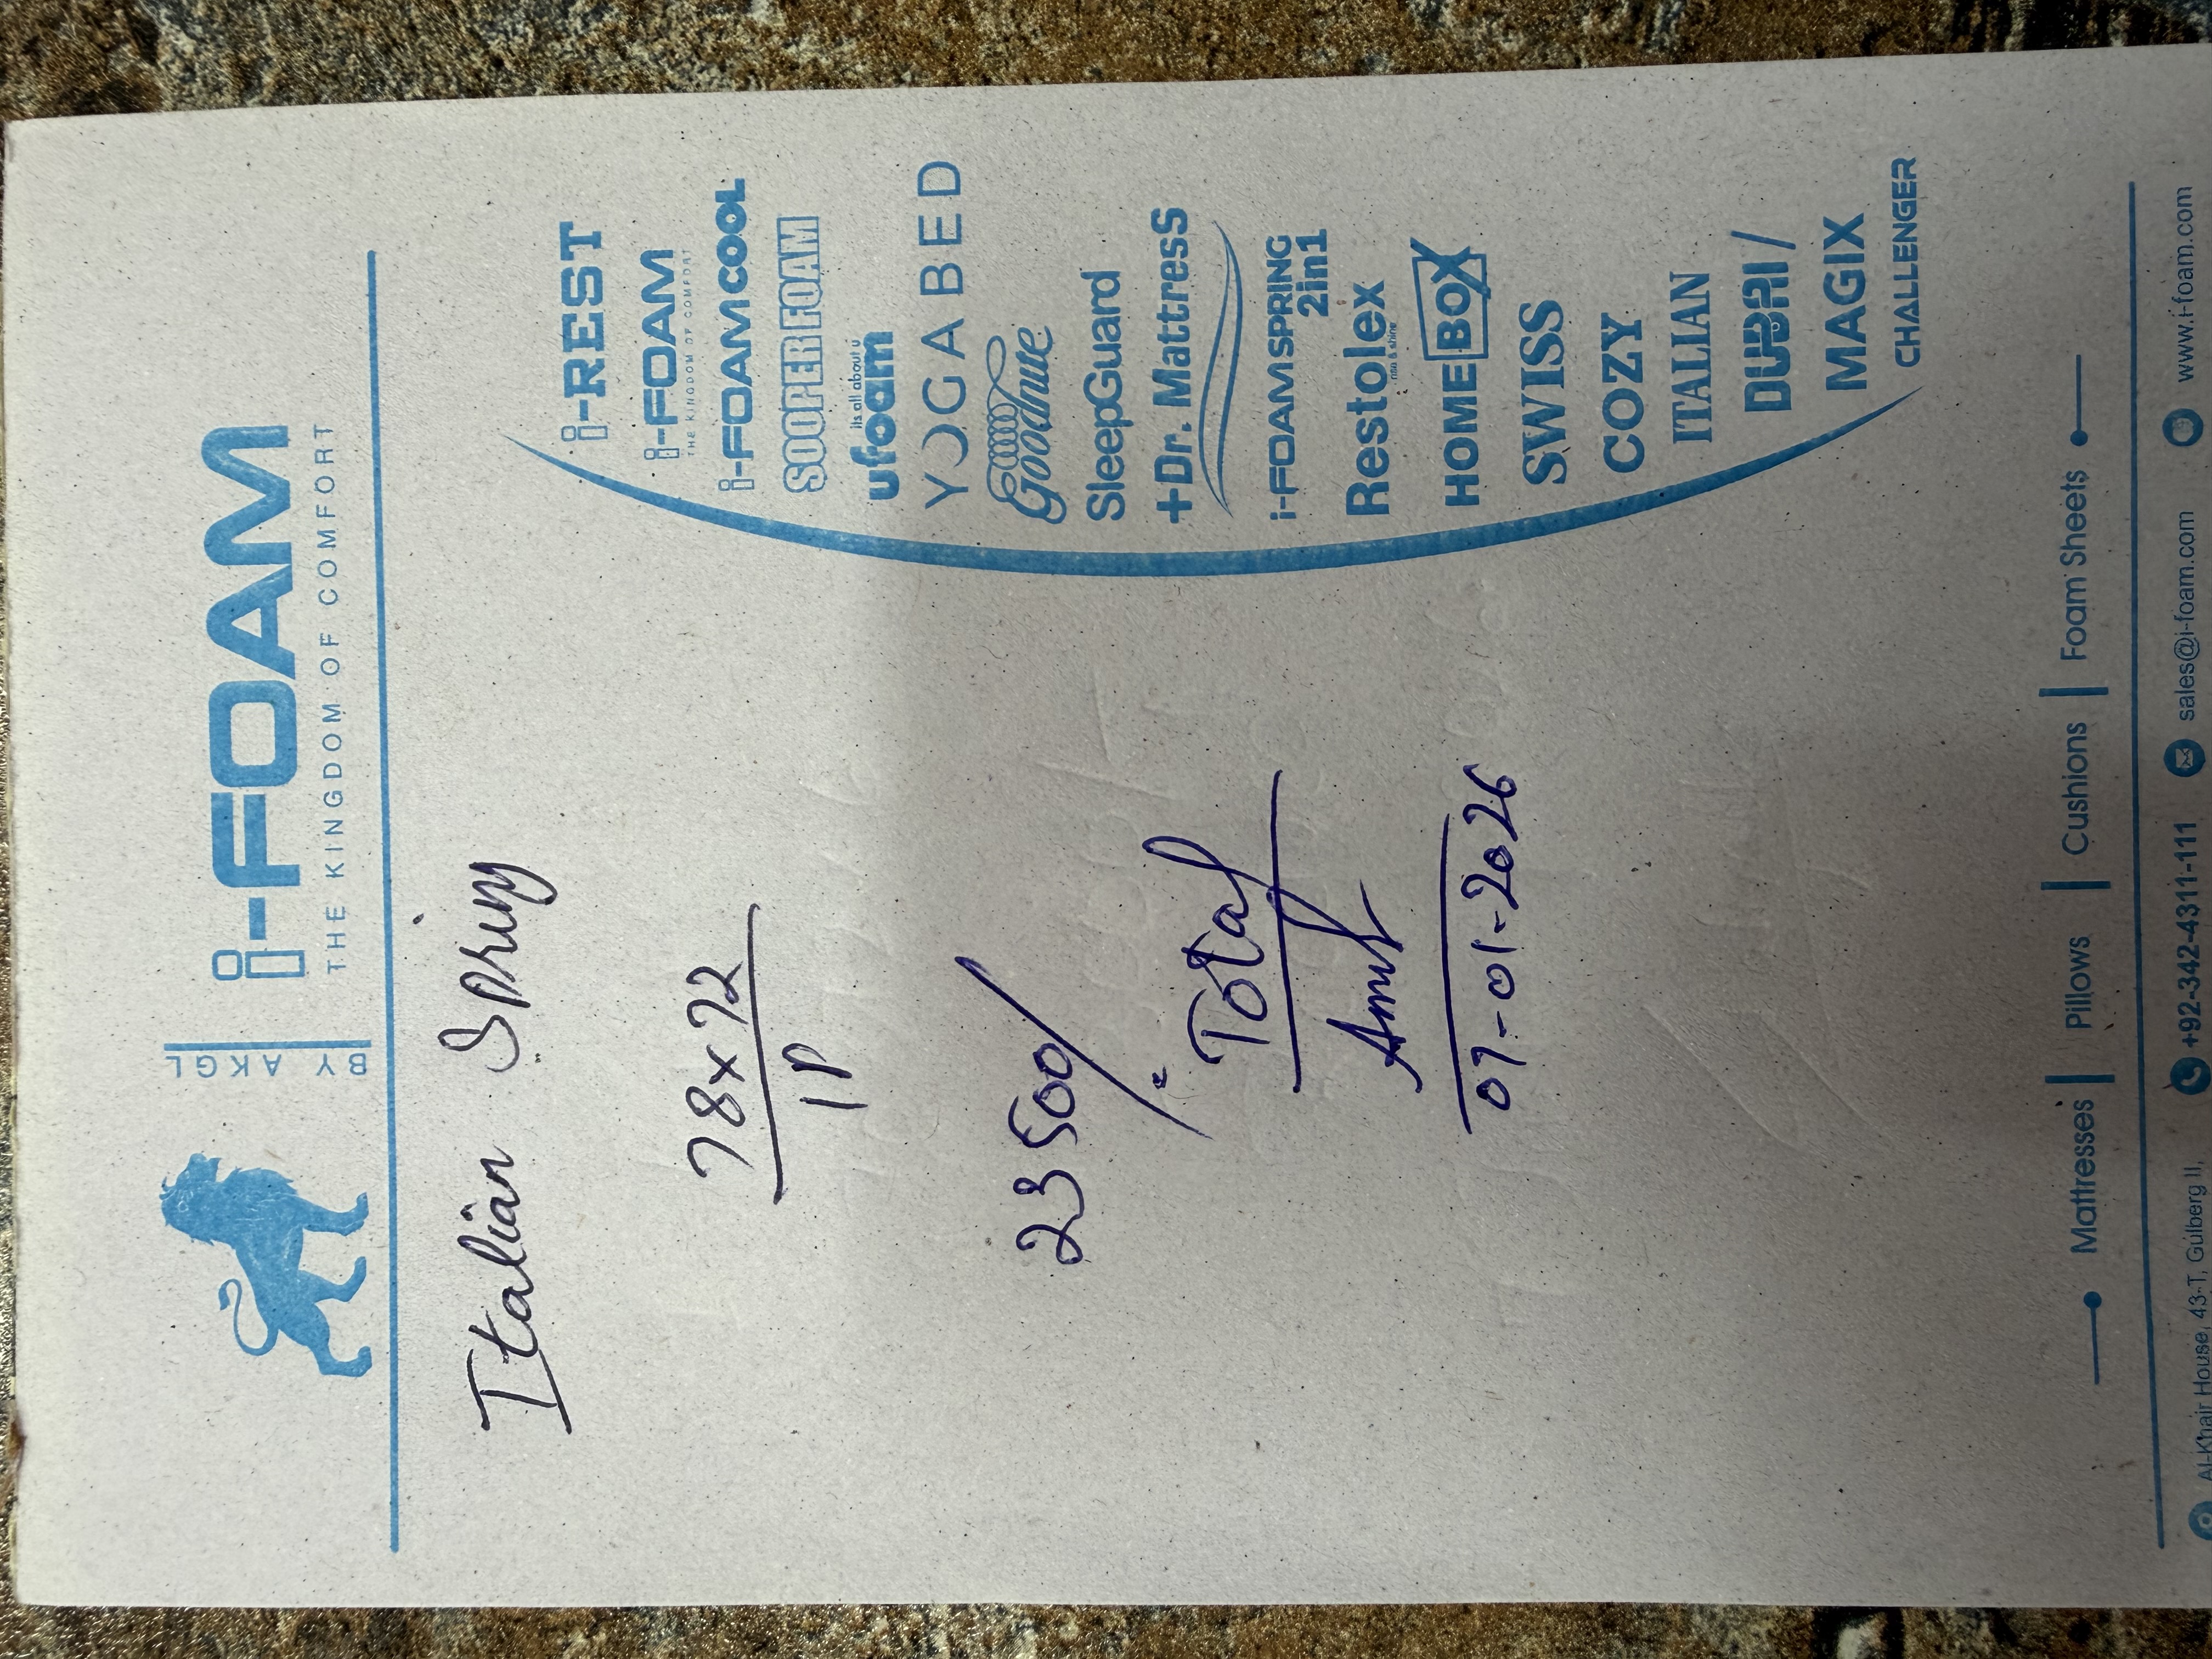 BY AKGL
i-FOAM
THE KINGDOM OF COMFORT
Italian Spring
78x72
1P
23500/
Total
Amt
07-01-2026
i-REST
i-FOAM
THE KINGDOM OF COMFORT
i-FOAMCOOL
SOOPER FOAM
its all about u
ufoam
YOGABED
Goodnite
SleepGuard
+Dr. MattresS
i-FOAM SPRING
2in1
Restolex
rise & shine
HOMEBOX
SWISS
COZY
ITALIAN
DUBAI /
MAGIX
CHALLENGER
Mattresses | Pillows | Cushions | Foam Sheets
Al-Khair House, 43-T, Gulberg II, +92-342-4311-111 sales@i-foam.com www.i-foam.com